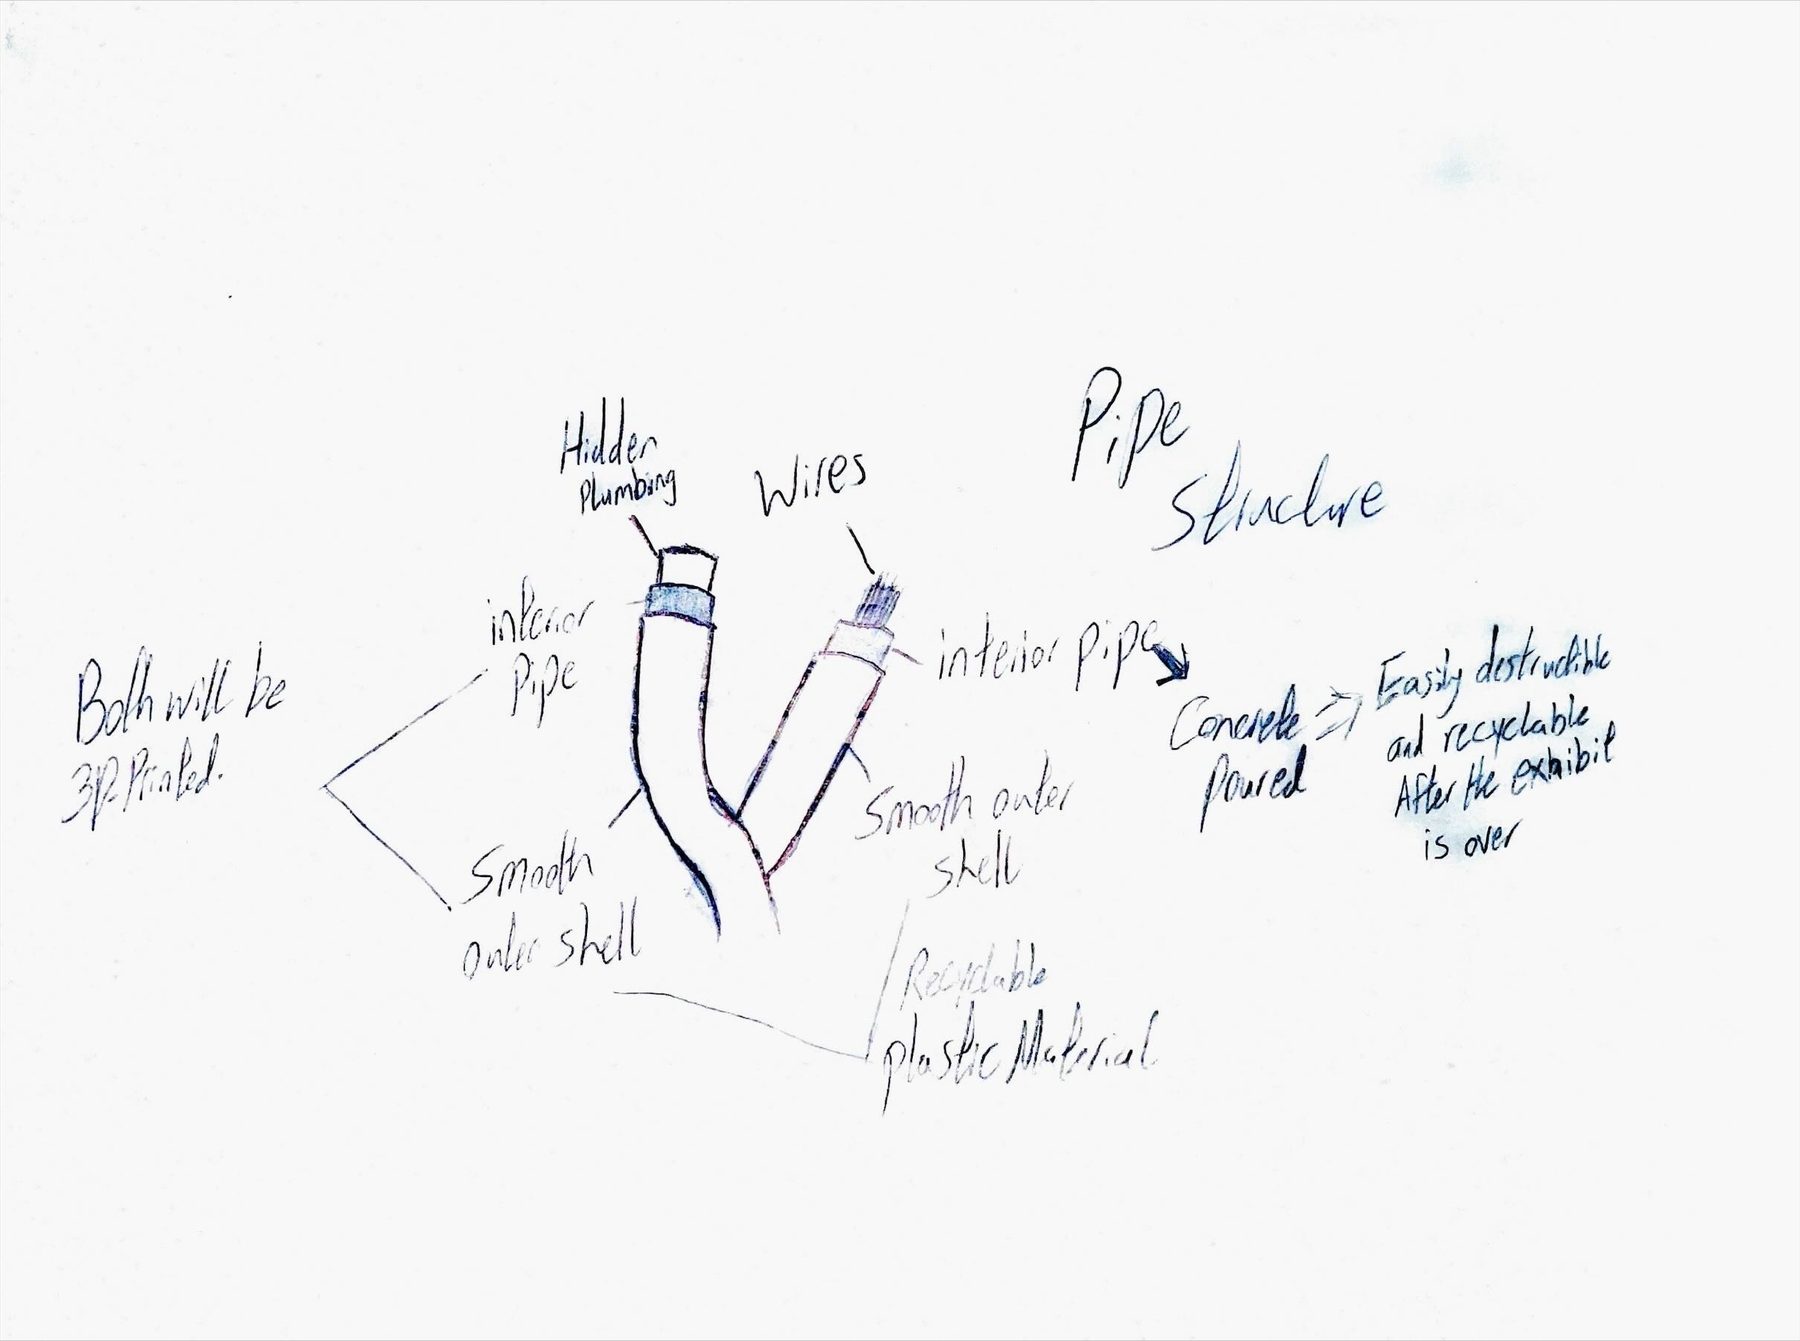 Pipe
Structure
Hidden
Plumbing
Wires
interior
pipe
interior pipe
Both will be
3D Printed.
Concrete
poured
Easily destructible
and recyclable
After the exhibit
is over
Smooth outer
shell
Smooth
outer shell
Recyclable
plastic Material